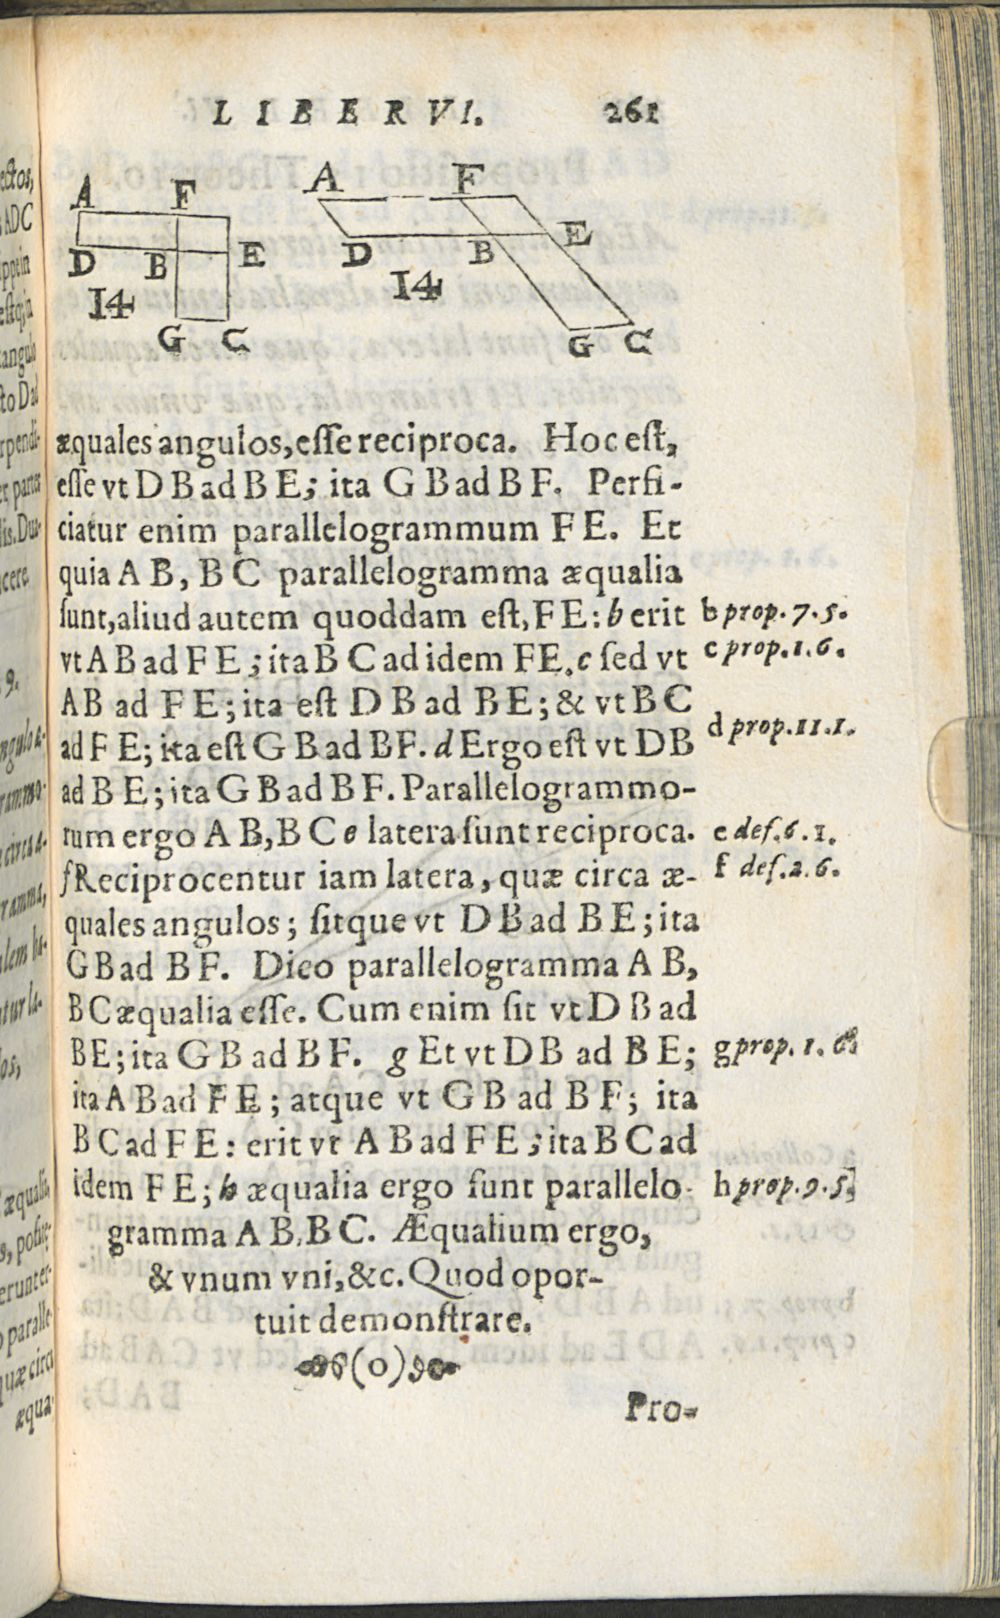 LIBER VI. 261
A F
D B E
14
G C
A F
D B E
14
G C
æquales angulos, esse reciproca. Hoc est,
esse vt D B ad B E; ita G B ad B F. Perfi-
ciatur enim parallelogrammum F E. Et
quia A B, B C parallelogramma æqualia
sunt, aliud autem quoddam est, F E: b erit
b prop. 7. 5.
vt A B ad F E; ita B C ad idem FE. c sed vt
c prop. 1. 6.
AB ad F E; ita est D B ad B E; & vt B C
ad F E; ita est G B ad B F. d Ergo est vt D B
d prop. 11. 1.
ad B E; ita G B ad B F. Parallelogrammo-
rum ergo A B, B C e latera sunt reciproca.
e def. 6. 1.
f Reciprocentur iam latera, quæ circa æ-
f def. 2. 6.
quales angulos; sitque vt D B ad B E; ita
G B ad B F. Dico parallelogramma A B,
B C æqualia esse. Cum enim sit vt D B ad
BE; ita G B ad B F. g Et vt D B ad B E;
g prop. 1. 6.
ita A B ad F E; atque vt G B ad B F; ita
B C ad F E: erit vt A B ad F E; ita B C ad
idem F E; h æqualia ergo sunt parallelo-
h prop. 9. 5.
gramma A B, B C. Æqualium ergo,
& vnum vni, &c. Quod opor-
tuit demonstrare.
(0)
Pro-